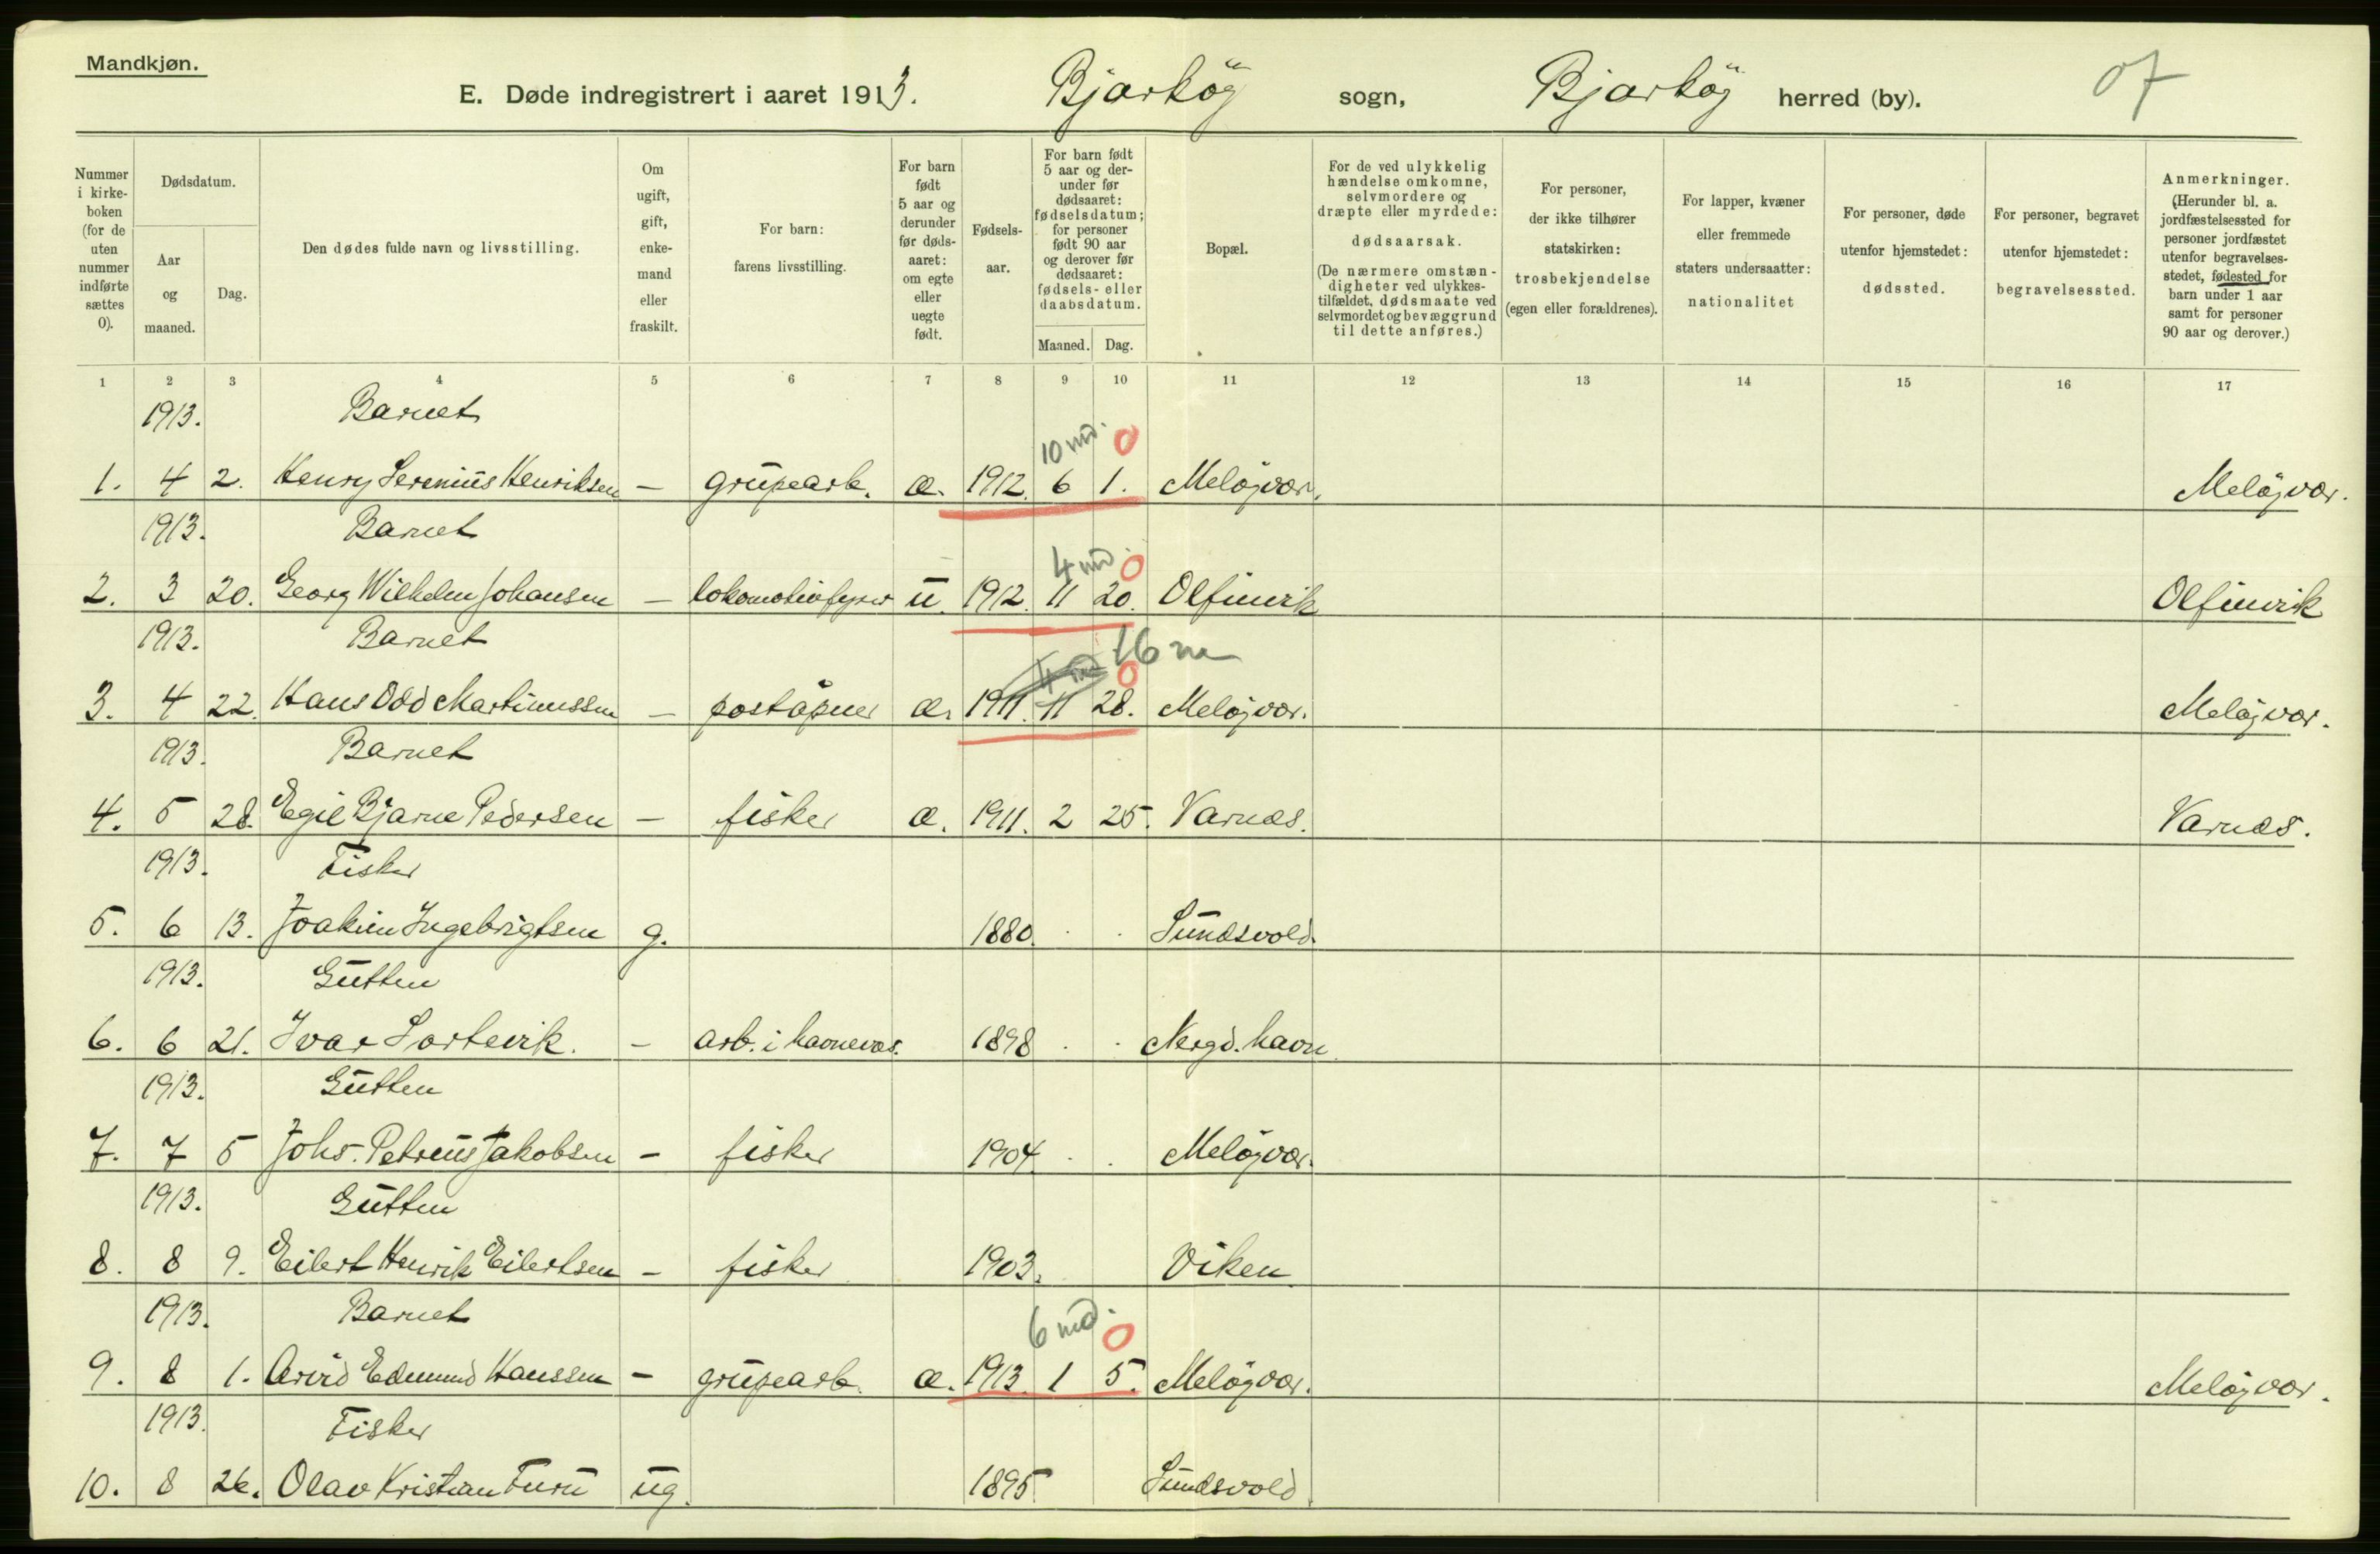 Mandkjøn.
E. Døde indregistrert i aaret 1913. Bjarköy sogn, Bjarköy herred (by). 07
Nummer i kirke-boken (for de uten nummer indførte sættes 0).
Dødsdatum.
Aar og maaned.
Dag.
Den dødes fulde navn og livsstilling.
Om ugift, gift, enke-mand eller fraskilt.
For barn: farens livsstilling.
For barn født 5 aar og derunder før døds-aaret: om egte eller uegte født.
Fødsels-aar.
For barn født 5 aar og der-under før dødsaaret: fødselsdatum; for personer født 90 aar og derover før dødsaaret: fødsels- eller daabsdatum.
Maaned. Dag.
Bopæl.
For de ved ulykkelig hændelse omkomne, selvmordere og dræpte eller myrdede: dødsaarsak. (De nærmere omstæn-digheter ved ulykkes-tilfældet, dødsmaate ved selvmordet og bevæggrund til dette anføres.)
For personer, der ikke tilhører statskirken: trosbekjendelse (egen eller forældrenes).
For lapper, kvæner eller fremmede staters undersaatter: nationalitet
For personer, døde utenfor hjemstedet: dødssted.
For personer, begravet utenfor hjemstedet: begravelsessted.
Anmerkninger. (Herunder bl. a. jordfæstelsessted for personer jordfæstet utenfor begravelses-stedet, fødested for barn under 1 aar samt for personer 90 aar og derover.)
1 2 3 4 5 6 7 8 9 10 11 12 13 14 15 16 17
1913. Barnet
10 md. 0
1. 4 2. Henry Serenius Henriksen – grubearb. æ. 1912. 6 1. Meløjvær. Meløjvær.
1913. Barnet
4 md. 0
2. 3 20. Georg Wilhelm Johansen – lokomotivfyrer u. 1912. 11 20. Olfinvik Olfinvik
1913. Barnet
4 md 16 m 0
3. 4 22. Hans Odd Martinussen – poståpner æ. 1911. 11 28. Meløjvær. Meløjvær.
1913. Barnet
4. 5 28. Egil Bjarne Pedersen – fisker æ. 1911. 2 25. Varnæs. Varnæs.
1913. Fisker
5. 6 13. Joakim Ingebrigtsen g. 1880. Sundsvold.
1913. Gutten
6. 6 21. Ivar Sortevik. – arb. i havnevæs. 1898 Nergd. havn
1913. Gutten
7. 7 5 Johs. Petreus Jakobsen – fisker 1904. Meløjvær.
1913. Gutten
8. 8 9. Eilert Henrik Eilertsen – fisker 1903. Viken
1913. Barnet
6 md. 0
9. 8 1. Arvid Edmund Hanssen – grubearb. æ. 1913. 1 5. Meløjvær. Meløjvær.
1913. Fisker
10. 8 26. Olav Kristian Furu ug. 1895 Sundsvold.